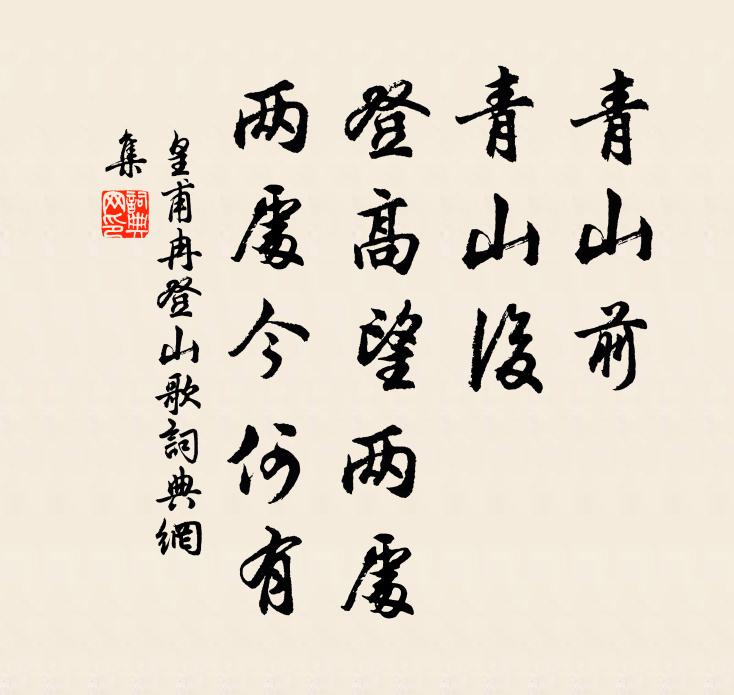 青山前
青山後
登高望两處
两處今何有
皇甫冉登山歌詞典網
集
詞典網印